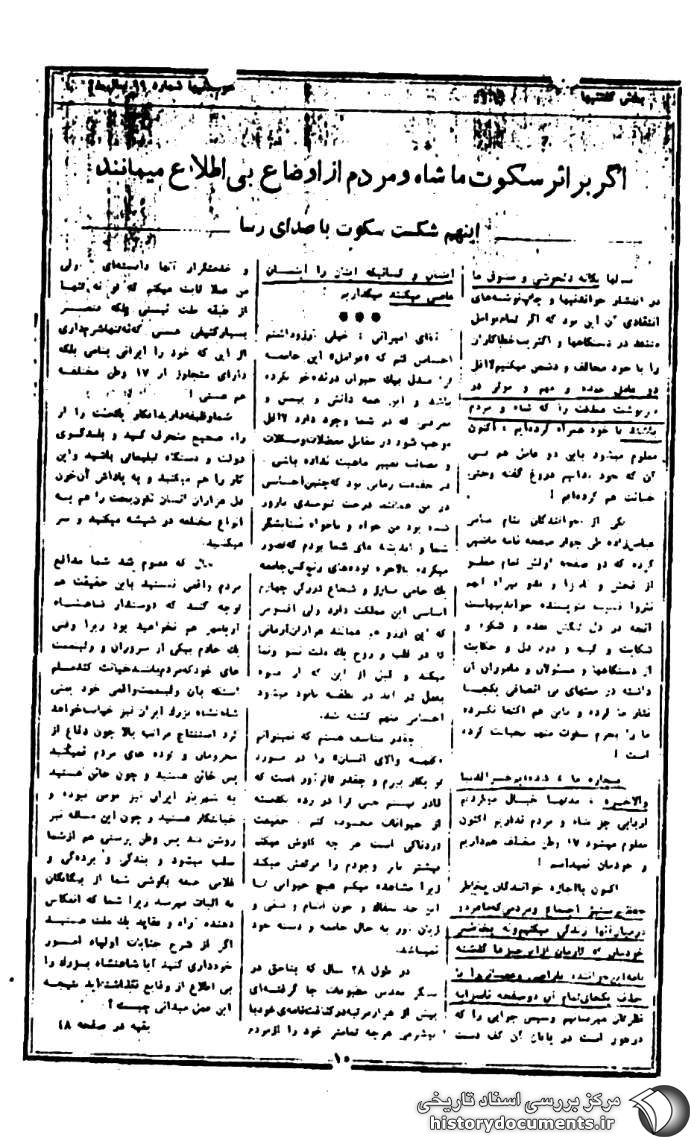 بخش گفتنیها
خواندنیها شماره ۱۹ سال
اگر بر اثر سکوت ما شاه و مردم از اوضاع بی اطلاع میمانند
اینهم شکست سکوت با صدای رسا
سالها یگانه دلخوشی و مشوق ما
در انتشار خواندنیها و چاپ نوشته‌های
انتقادی آن این بود که اگر تمام عوامل
متنفذ در دستگاهها و اکثریت خطاکاران
را با خود مخالف و دشمن میکنیم لااقل
دو عامل عمده و مهم و موثر در
سرنوشت مملکت را که شاه و مردم
باشند با خود همراه کرده‌ایم ، اکنون
معلوم میشود باین دو عامل هم بی
آن که خود بدانیم دروغ گفته وحتی
خیانت هم کرده‌ایم !
یکی از خوانندگان بنام
عباس‌زاده طی چهار صفحه نامه ماشینی
کرده که دو صفحه اولش تمام مملو
از فحش و ناسزا و
نثروا نصیب نویسنده خواندنیهاست
آنچه در دل تنگش عقده و شکوه و
شکایت و گله و درد دل و حکایت
از دستگاهها و مسئولان و ماموران آن
داشته در منتهای بی انصافی یکجا
نثار ما کرده و باین هم اکتفا نکرده
ما را بجرم سکوت متهم بخیانت کرده
است !
بیچاره ما ، شده‌ایم خسرالدنیا
والاخره ، مدتها خیال میکردیم
اربابی جز شاه و مردم نداریم اکنون
معلوم میشود ۱۷ وطن مختلف هم‌داریم
و خودمان نمیدانیم !
اکنون بااجازه خوانندگان بخاطر
اجتماع و مردمی که ما هم در
میان آنها زندگی میکنیم و نه بخاطر
خودمان که کارمان از این چیزها گذشته
نامه این خواننده ناراضی و عصبی را با
حذف یکجای تمام آن دو صفحه ناسزا به
نظرتان میرسانیم و سپس جوابی را که
درخور است در پایان آن کف دست
ایشان و کسانیکه ایشان را اینسان
عاصی میکنند میگذاریم :
***
آقای امیرانی : خیلی آرزو داشتم
احساس کنم که «عوامل» این جامعه
ترا مبدل بیک حیوان درنده‌خو نکرده
باشد و این همه دانش و بینش و
معرفتی که در شما وجود دارد لااقل
موجب شود در مقابل معضلات و مشکلات
و مصائب تغییر ماهیت نداده باشی .
در حقیقت زمانی بود که چنین احساسی
در من همانند درخت تنومندی بارور
شده بود من خواه و ناخواه ستایشگر
شما و اندیشه های شما بودم که تصور
میکردم بالاخره توده‌های رنج‌کش جامعه
یک حامی مبارز و شجاع در رکن چهارم
اساسی این مملکت دارد ولی افسوس
که این آرزو هم همانند هزاران آرمانی
که در قلب و روح یک ملت نمو و نما
میکند و لیکن از این که از قوه
بفعل در آید در نطفه نابود میشود
احساس منهم کشته شد.
چقدر متاسف هستم که نمیتوانم
«کلمه والای انسان» را در مورد
تو بکار ببرم و چقدر تاثرآور است که
قادر نیستم حتی ترا در رده یکدسته
از حیوانات محسوب کنم . حقیقت
دردناکی است هر چه کاوش میکنم
بیشتر تار وجودم را مرتعش میکند
زیرا مشاهده میکنم هیچ حیوانی تا
این حد سفاک و خون آشام و شقی و
زیان آور به حال جامعه و دسته خود
نمیباشد.
در طول ۲۸ سال که بناحق در
سنگر مقدس مطبوعات جا گرفته‌ای
بیش از هزار مرتبه در کثافت‌نامه‌ی خود با
بیشرمی هرچه تمامتر خود را نوکر مردم
و خدمتگزار آنها دانسته‌ای ولی
من عملا ثابت میکنم که تو نه تنها
از طبقه ملت نیستی بلکه عنصر
بسیار کثیفی هستی که نه تنها شرم داری
از این که خود را ایرانی بنامی بلکه
دارای متجاوز از ۱۷ وطن مختلف
هم هستی !
شما وظیفه دارید افکار یک ملت را از
راه صحیح منحرف کنید و بلندگوی
دولت و دستگاه تبلیغاتی باشید و این
کار را هم میکنید و به پاداش آن خون
دل هزاران انسان نگون‌بخت را هم به
انواع مختلف در شیشه میکنید و سر
میکشید.
حال که معلوم شد شما مدافع
مردم واقعی نیستید باین حقیقت هم
توجه کنید که دوستدار شاهنشاه
آریامهر هم نخواهید بود زیرا وقتی
یک خادم بیکی از سروران و ولینعمت
های خود که مردم باشند خیانت کند مسلم
است که بآن ولینعمت واقعی خود یعنی
شاهنشاه بزرگ ایران نیز خیانت خواهد
کرد استنتاج مراتب بالا چون دفاع از
محرومان و توده های مردم نمیکنید
پس خائن هستید و چون خائن هستید
به شهریار ایران نیز مومن نبوده و
خیانتکار هستید و چون این مساله نیز
روشن شد پس وطن پرستی هم از شما
سلب میشود و بندگی و بردگی و
غلامی حلقه بگوشی شما از بیگانگان
به اثبات میرسد زیرا شما که انعکاس
دهنده آراء و عقاید یک ملت هستید
اگر از شرح جنایات اولیاء امور
خودداری کنید آیا شاهنشاه بزرگ را
بی اطلاع از وقایع نگذاشته‌اید نتیجه
این عمل میدانی چیست؟
بقیه در صفحه ۴۸
۱۰
مرکز بررسی اسناد تاریخی
historydocuments.ir